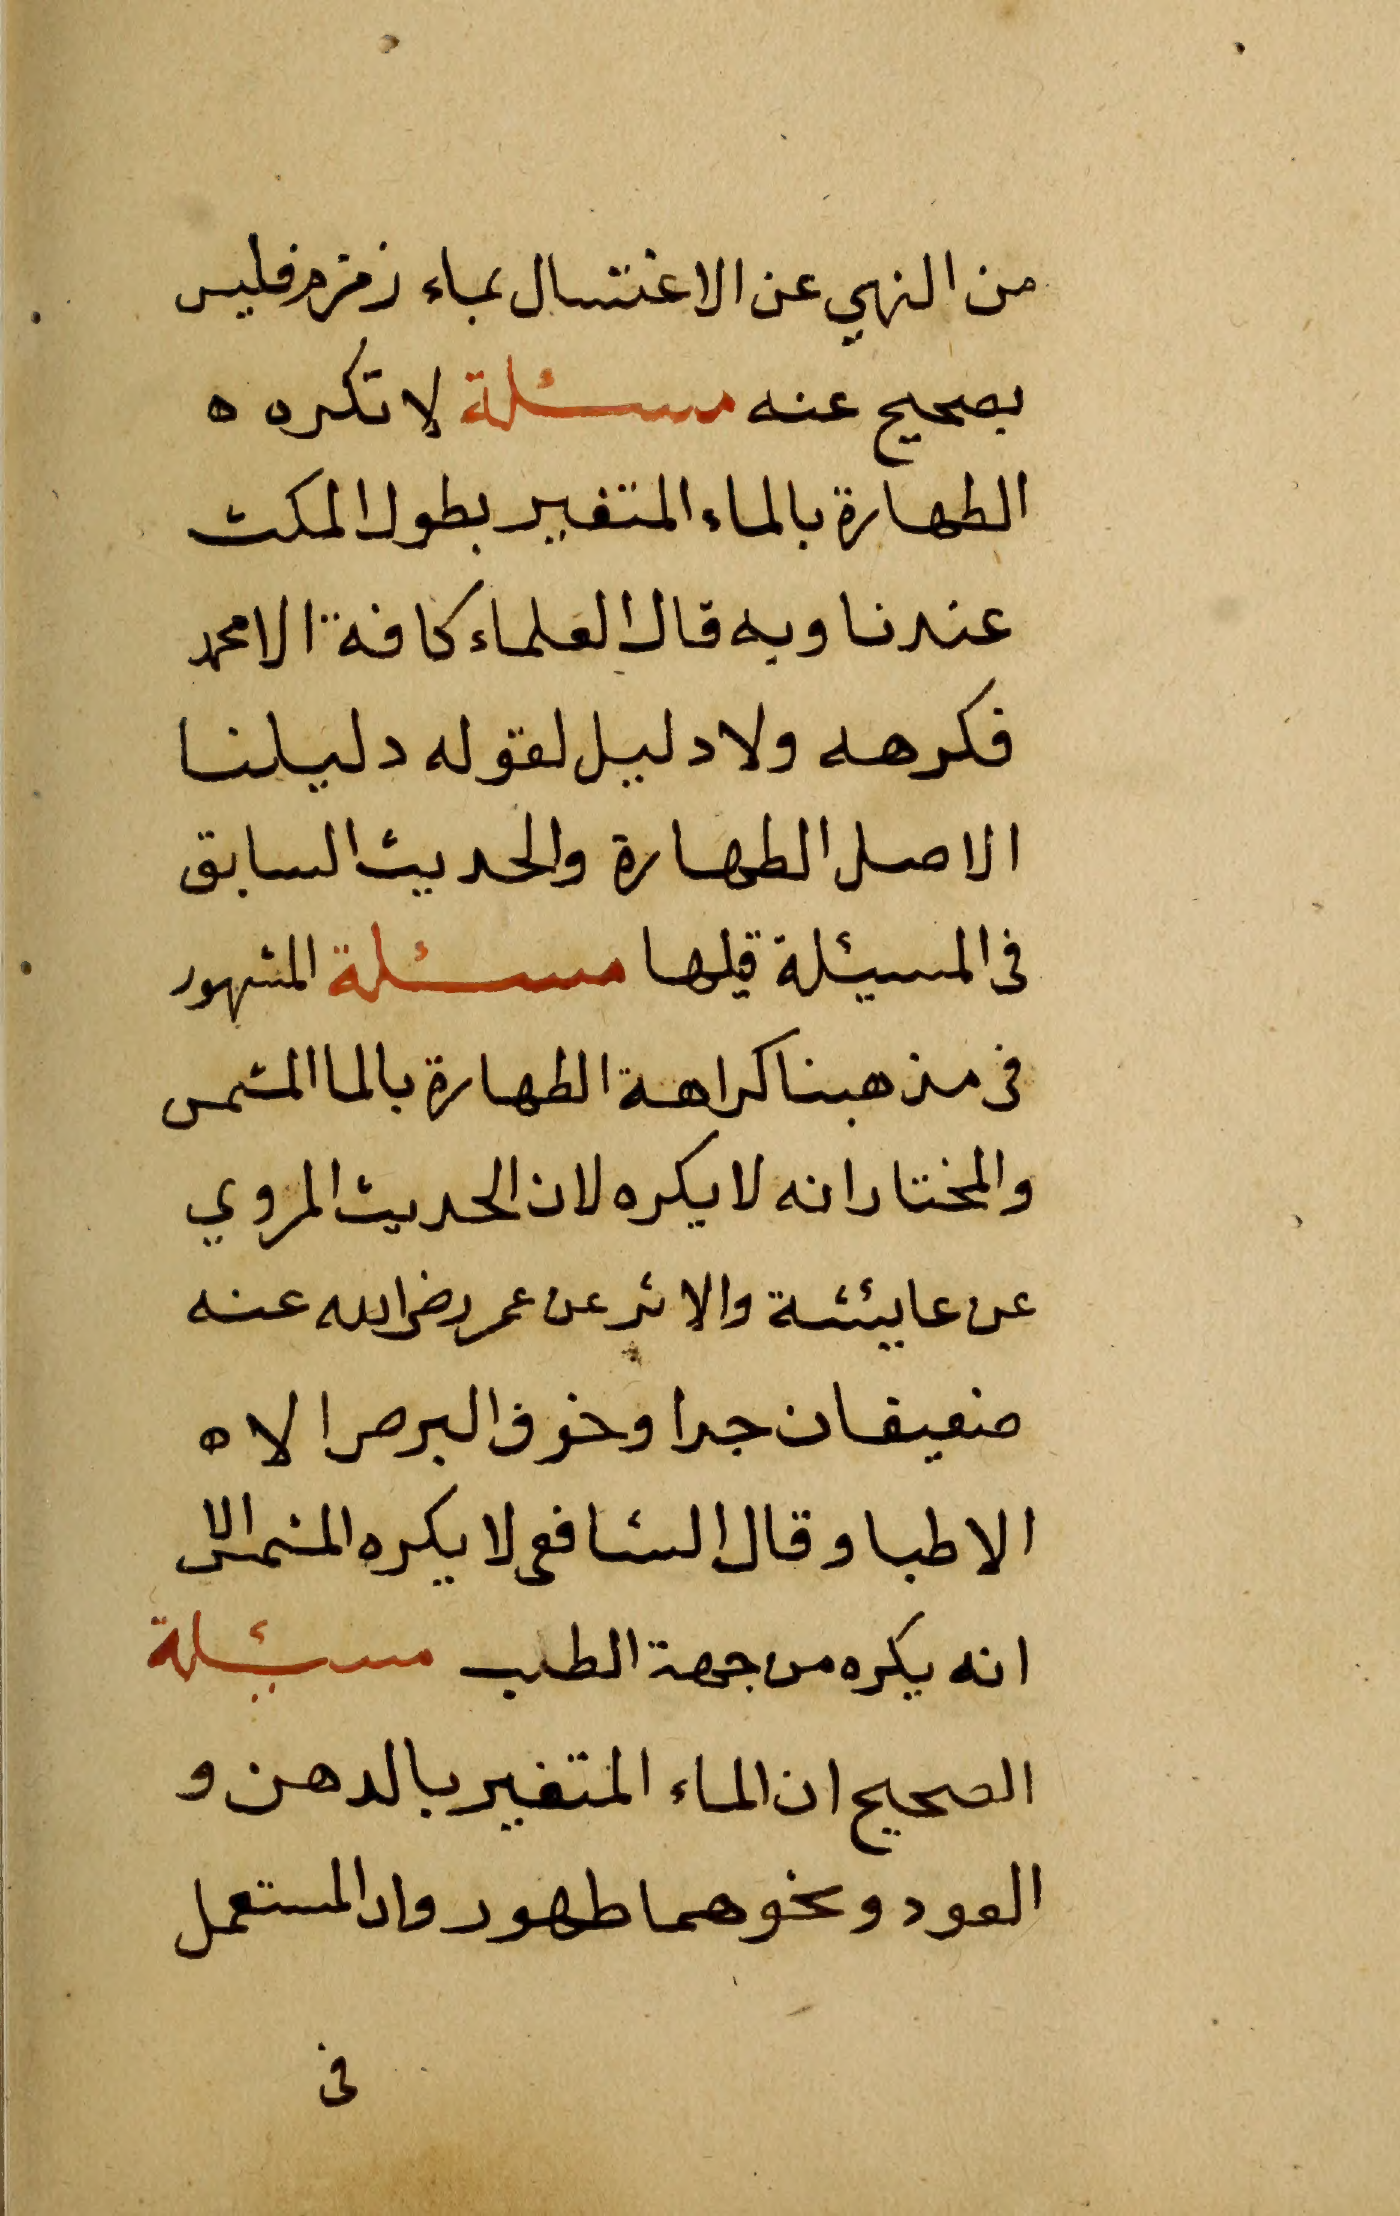 من النهي عن الاغتسال بماء زمزم فليس
بصحيح عنه مسئلة لا تكره ه
الطهارة بالماء المتغير بطول المكث
عندنا وبه قال العلماء كافة الا محمد
فكرهه ولا دليل لقوله دليلنا
الاصل الطهارة والحديث السابق
فى المسيئلة قبلها مسئلة المشهور
فى مذهبنا كراهة الطهارة بالما المشمس
والمختار انه لا يكره لان الحديث المروي
عن عايئشة والاثر عن عمر رضي الله عنه
ضعيفان جدا وخوف البرص الا ه
الاطبا وقال الشافعى لا يكره المشمس الا
انه يكره من جهة الطب مسيئلة
الصحيح ان الماء المتغير بالدهن و
العود ونحوهما طهور وان المستعمل
فى